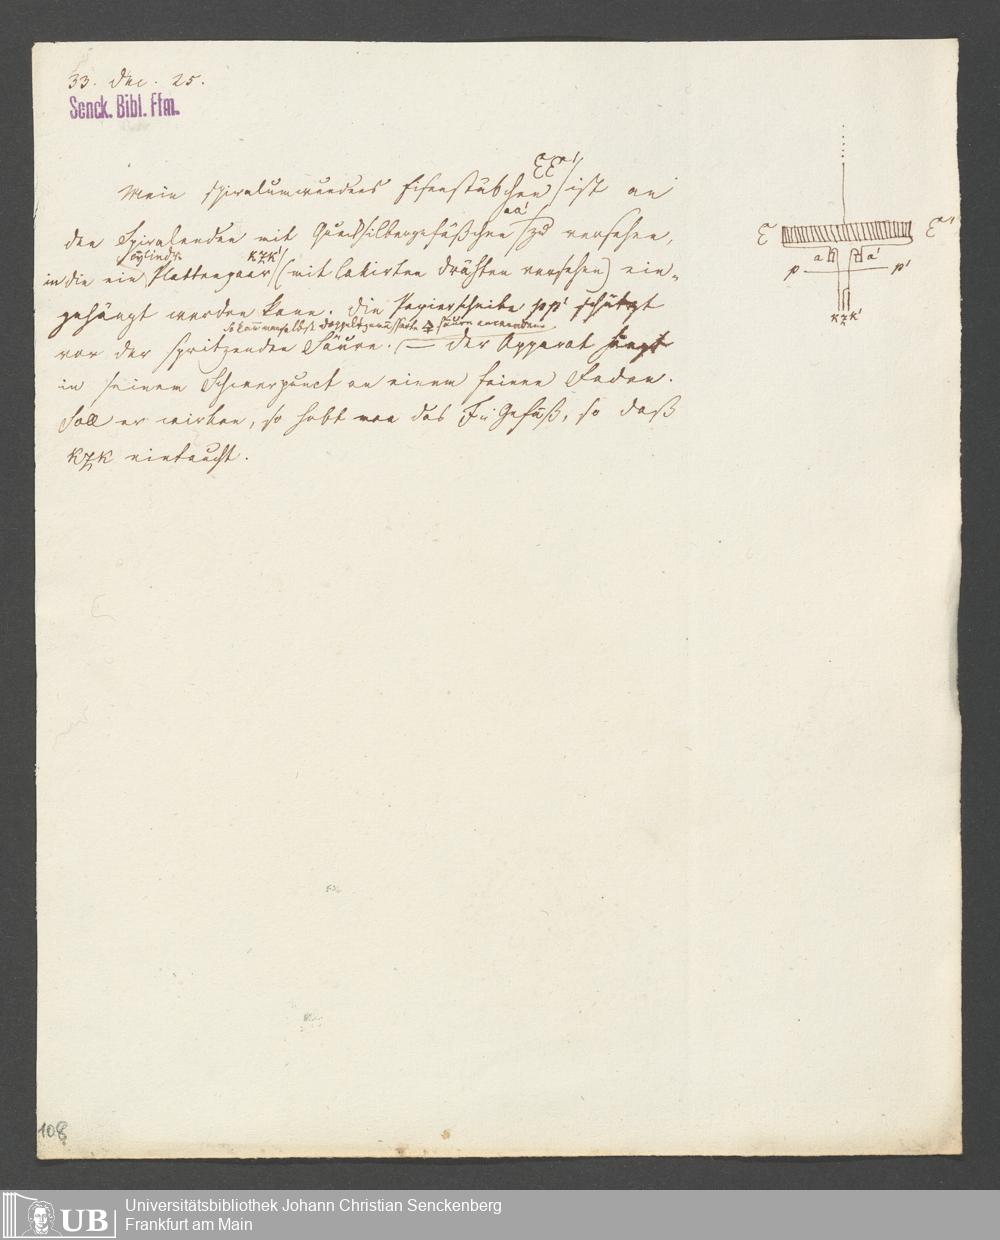 33. Dec. 25.
Senck. Bibl. Ffm.
EE'
Mein spiralumwundenes Eisenstäbchen / ist an
aa'
den Spiralenden mit Quecksilbergefäßchen / zu versehen,
/ cylindr. kzk'
in die ein Plattenpaar / (mit lakirten Drähten versehen) ein-
gehängt werden kann. Die Papierscheibe pp' schützt
so kann man selbst doppelt so starke Säure anwenden
vor der spritzenden Säure. — Der Apparat hängt
in seinem Schwerpunct an einem feinen Faden.
Soll er wirken, so hebt man das Gefäß, so daß
kzk eintaucht.
E E'
a a'
p p'
kzk'
108
UB
Universitätsbibliothek Johann Christian Senckenberg
Frankfurt am Main